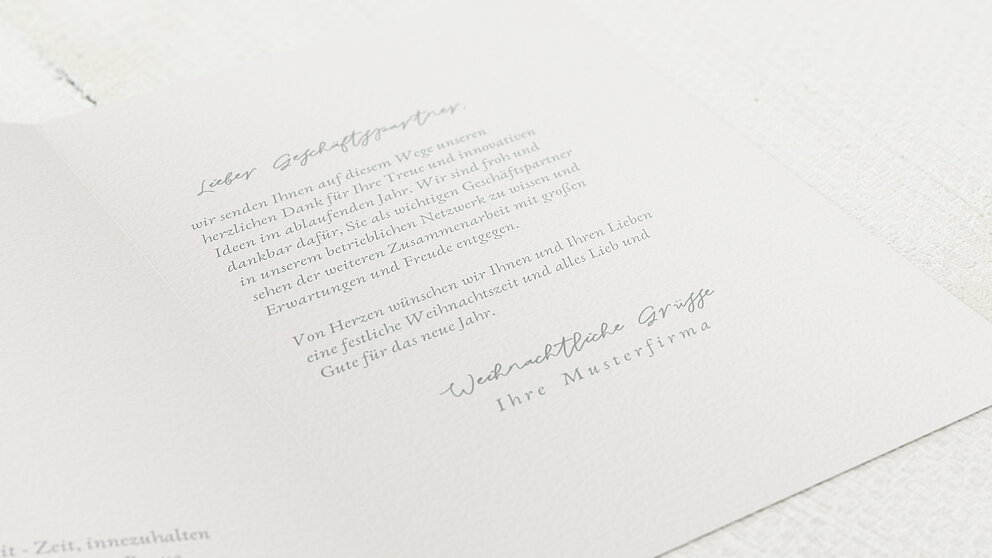 Lieber Geschäftspartner,
wir senden Ihnen auf diesem Wege unseren
herzlichen Dank für Ihre Treue und innovativen
Ideen im ablaufenden Jahr. Wir sind froh und
dankbar dafür, Sie als wichtigen Geschäftspartner
in unserem betrieblichen Netzwerk zu wissen und
sehen der weiteren Zusammenarbeit mit großen
Erwartungen und Freude entgegen.
Von Herzen wünschen wir Ihnen und Ihren Lieben
eine festliche Weihnachtszeit und alles Lieb und
Gute für das neue Jahr.
Weihnachtliche Grüsse
Ihre Musterfirma
it - Zeit, innezuhalten